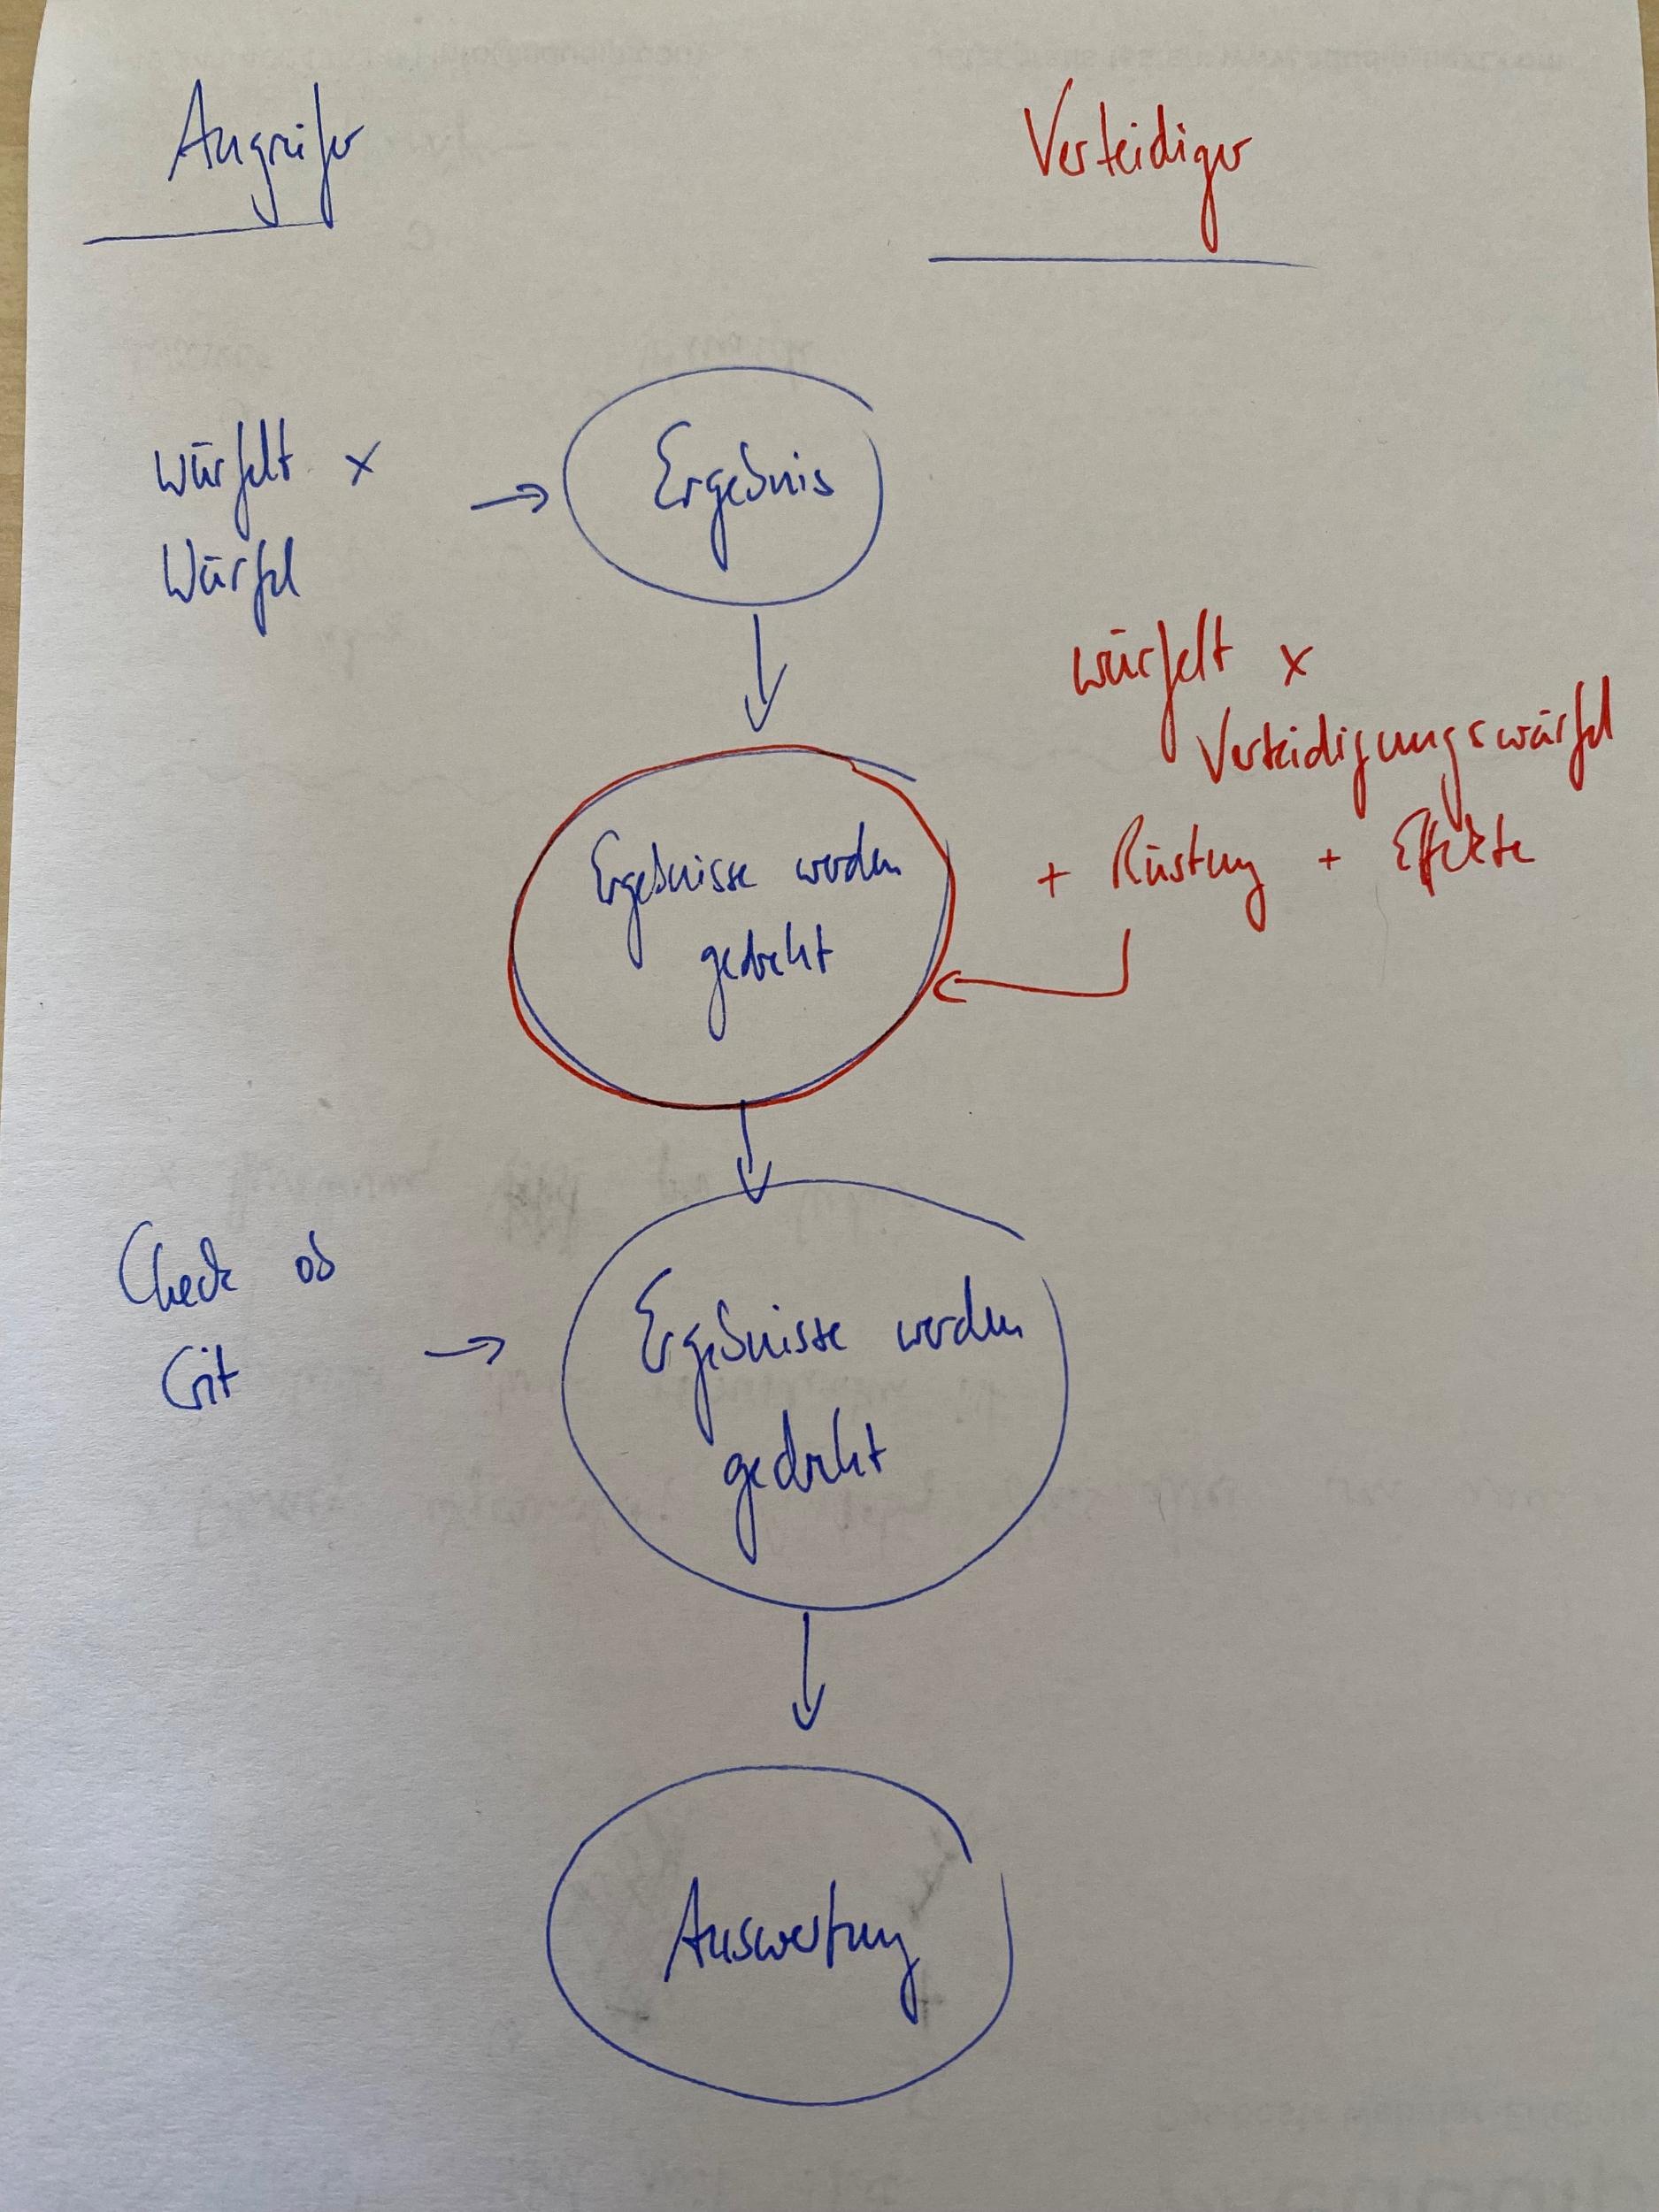 Angreifer
Verteidiger
würfelt x
Würfel
Ergebnis
würfelt x
Verteidigungswürfel
+ Rüstung + Effekte
Ergebnisse werden
gedreht
Check ob
Crit
Ergebnisse werden
gedreht
Auswertung